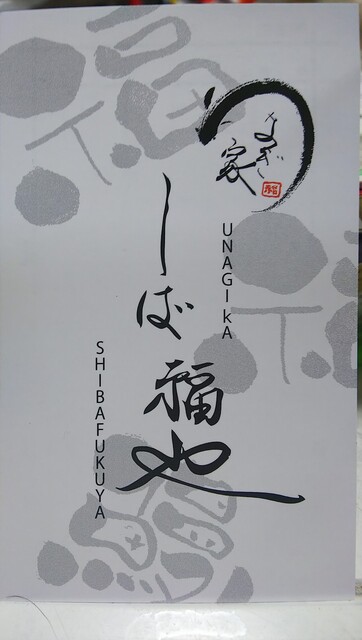 うなぎ家
UNAGI kA
しば福や
SHIBAFUKUYA